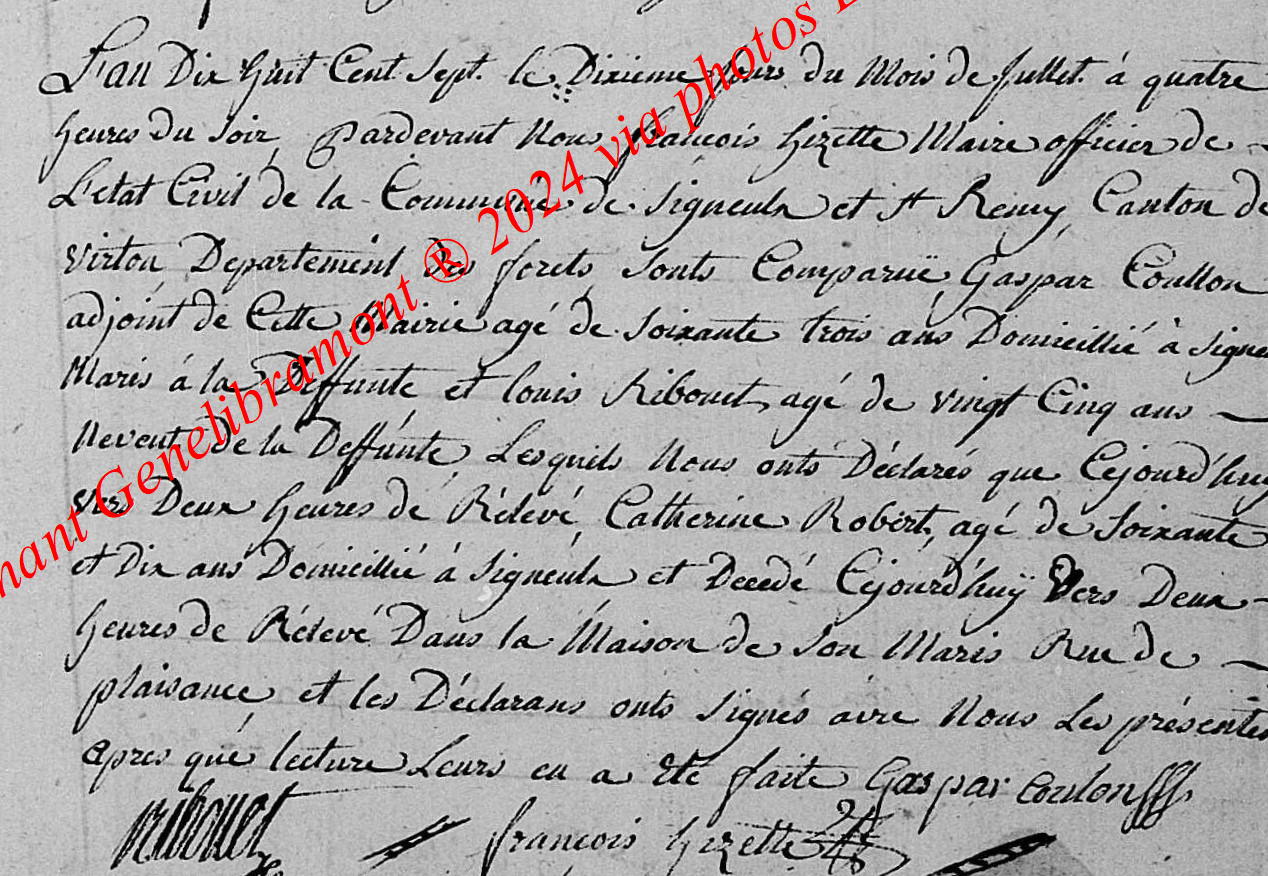 L'an Dix huit Cent Sept. le Dixieme jours du Mois de Jullet. á quatre
heures du Soir, Pardevant Nous françois Gizette Maire officier de
L'etat Civil de la Commune de Signeulx et St Remy, Canton de
Virton Departement des forets Sonts Comparuë Gaspar Coullon
adjoint de Cette Mairie agé de Soixante trois ans Domicillié à Signeu
Maris á la Deffunte et louis Ribouet, agé de vingt Cinq ans
Neveut de la Deffunte, Lesquels Nous onts Déclarés que Cejourd'huy
vers Deux heures de Rélevé Catherine Robert, agé de Soixante
et Dix ans Domicillié á Signeulx et Decedé Cejourd'huÿ Vers Deux
heures de Rélevé Dans la Maison de Son Maris Rue de
plaisance, et les Déclarans onts Signés avec Nous Les présentes
apres que lecture Leurs en a eté faite Gaspar Coulon
Ribouet françois Gizette
nant Genelibramont ® 2024 via photos